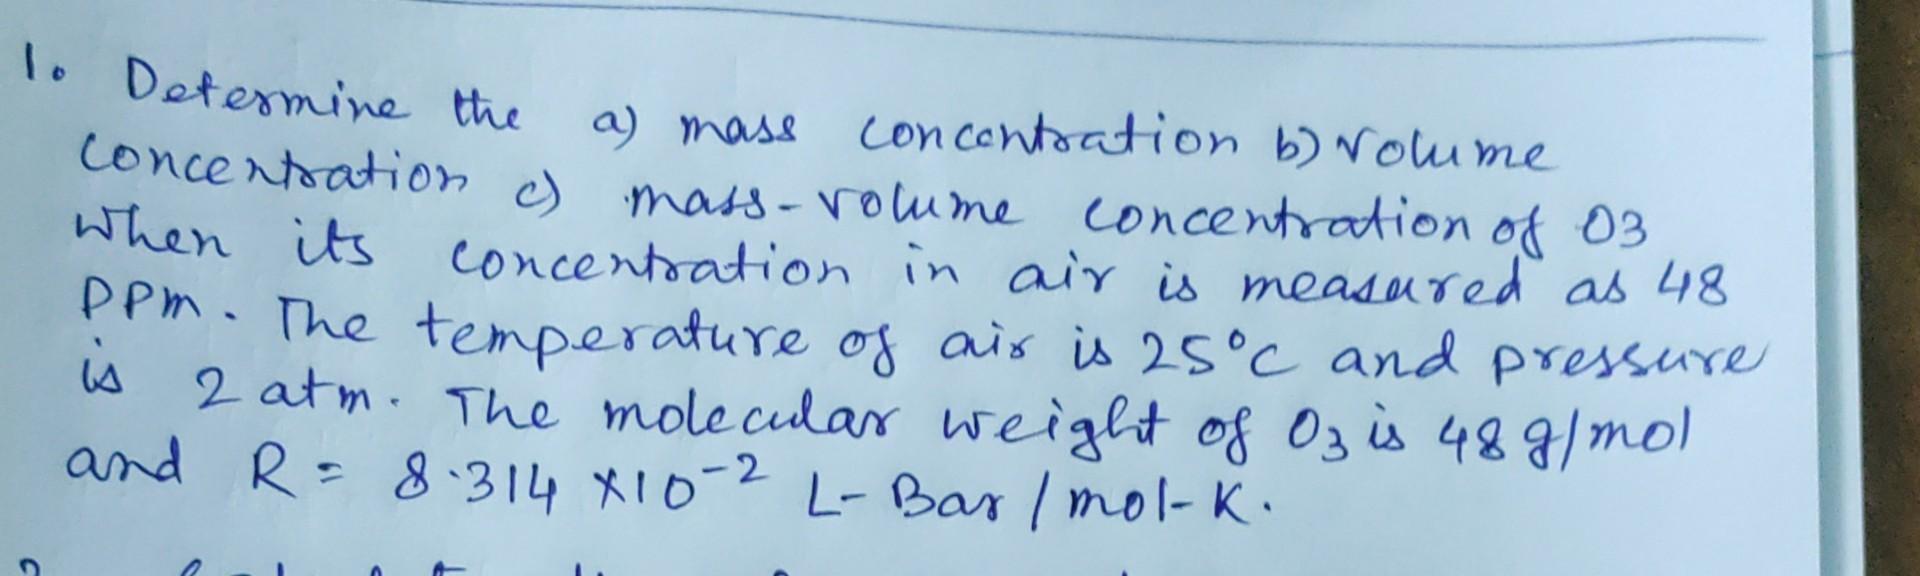 1. Determine the a) mass concentration b) volume
concentration c) mass-volume concentration of O3
when its concentration in air is measured as 48
PPm. The temperature of air is 25°C and pressure
is 2 atm. The molecular weight of O3 is 48 g/mol
and R = 8.314 ×10-2 L-Bar / mol-K.